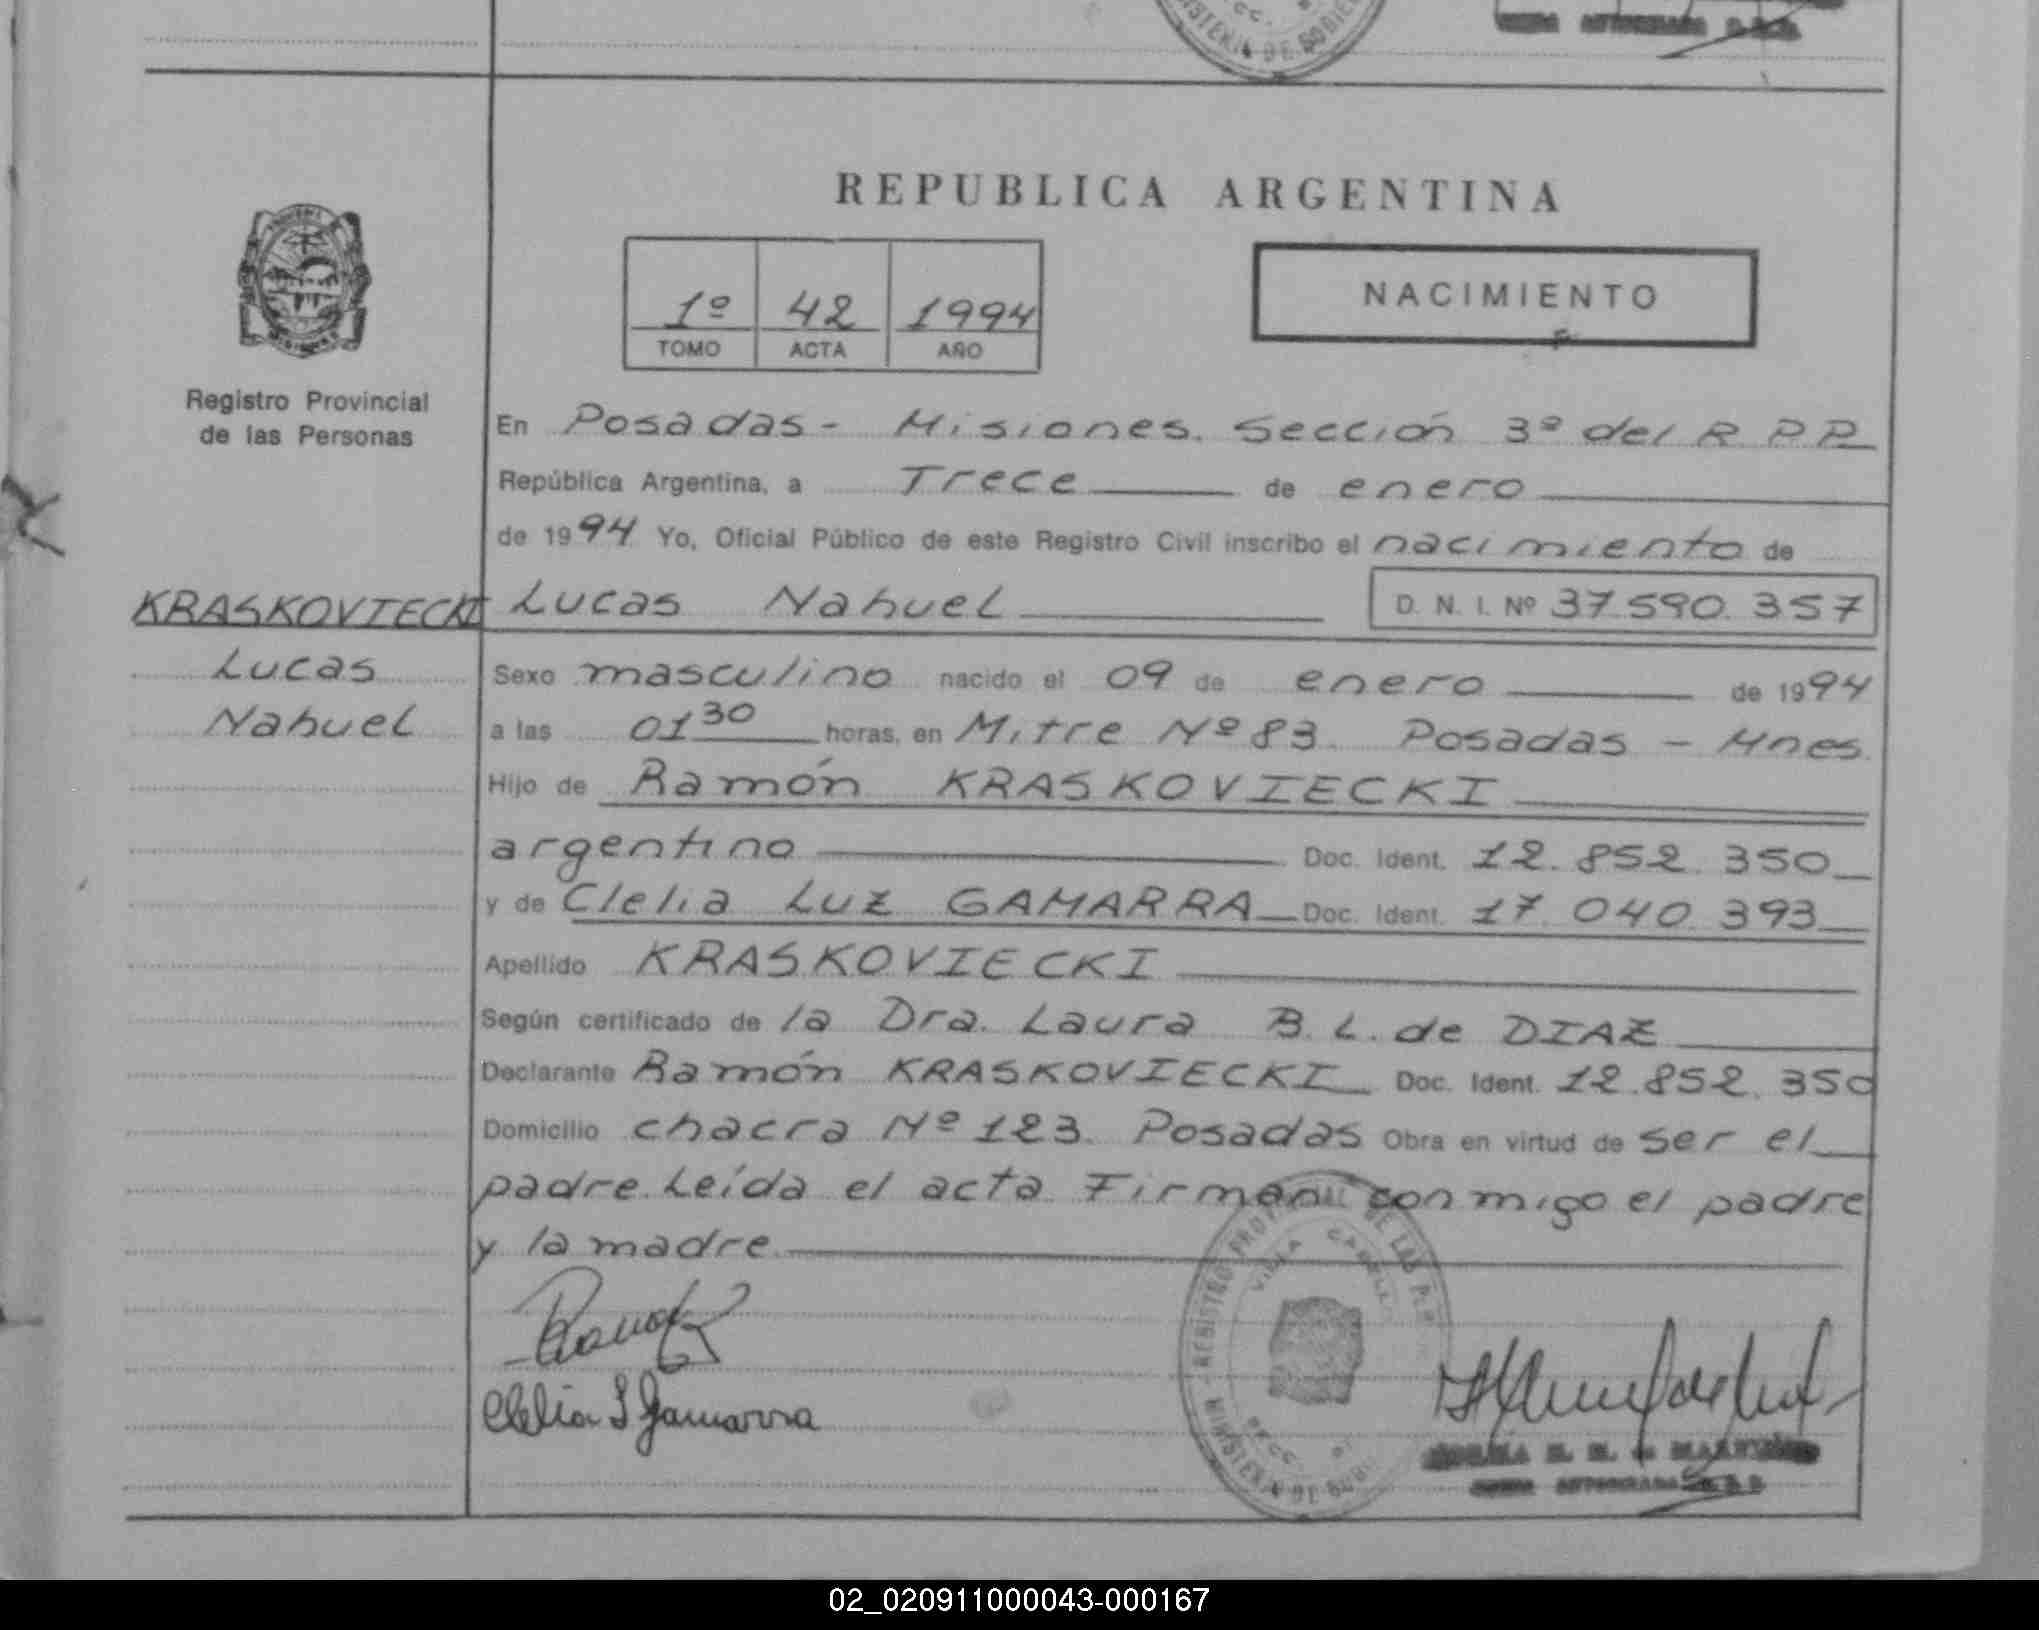 REPUBLICA ARGENTINA
1º 42 1994
TOMO ACTA AÑO
NACIMIENTO
Registro Provincial
de las Personas
En Posadas - Misiones. Sección 3º del R P P
República Argentina, a Trece de enero
de 1994 Yo, Oficial Público de este Registro Civil inscribo el nacimiento de
KRASKOVIECKI
Lucas
Nahuel
Lucas Nahuel D. N. I. Nº 37.590.357
Sexo masculino nacido el 09 de enero de 1994
a las 01 30 horas, en Mitre Nº 83. Posadas - Mnes.
Hijo de Ramón KRASKOVIECKI
argentino Doc. Ident. 12.852.350
y de Clelia Luz GAMARRA Doc. Ident. 17.040.393
Apellido KRASKOVIECKI
Según certificado de la Dra. Laura B. L. de DIAZ
Declarante Ramón KRASKOVIECKI Doc. Ident. 12.852.350
Domicilio chacra Nº 123. Posadas Obra en virtud de ser el
padre. Leída el acta Firman conmigo el padre
y la madre.
Clelia L Gamarra
REGISTRO PROVINCIAL DE LAS
02_020911000043-000167